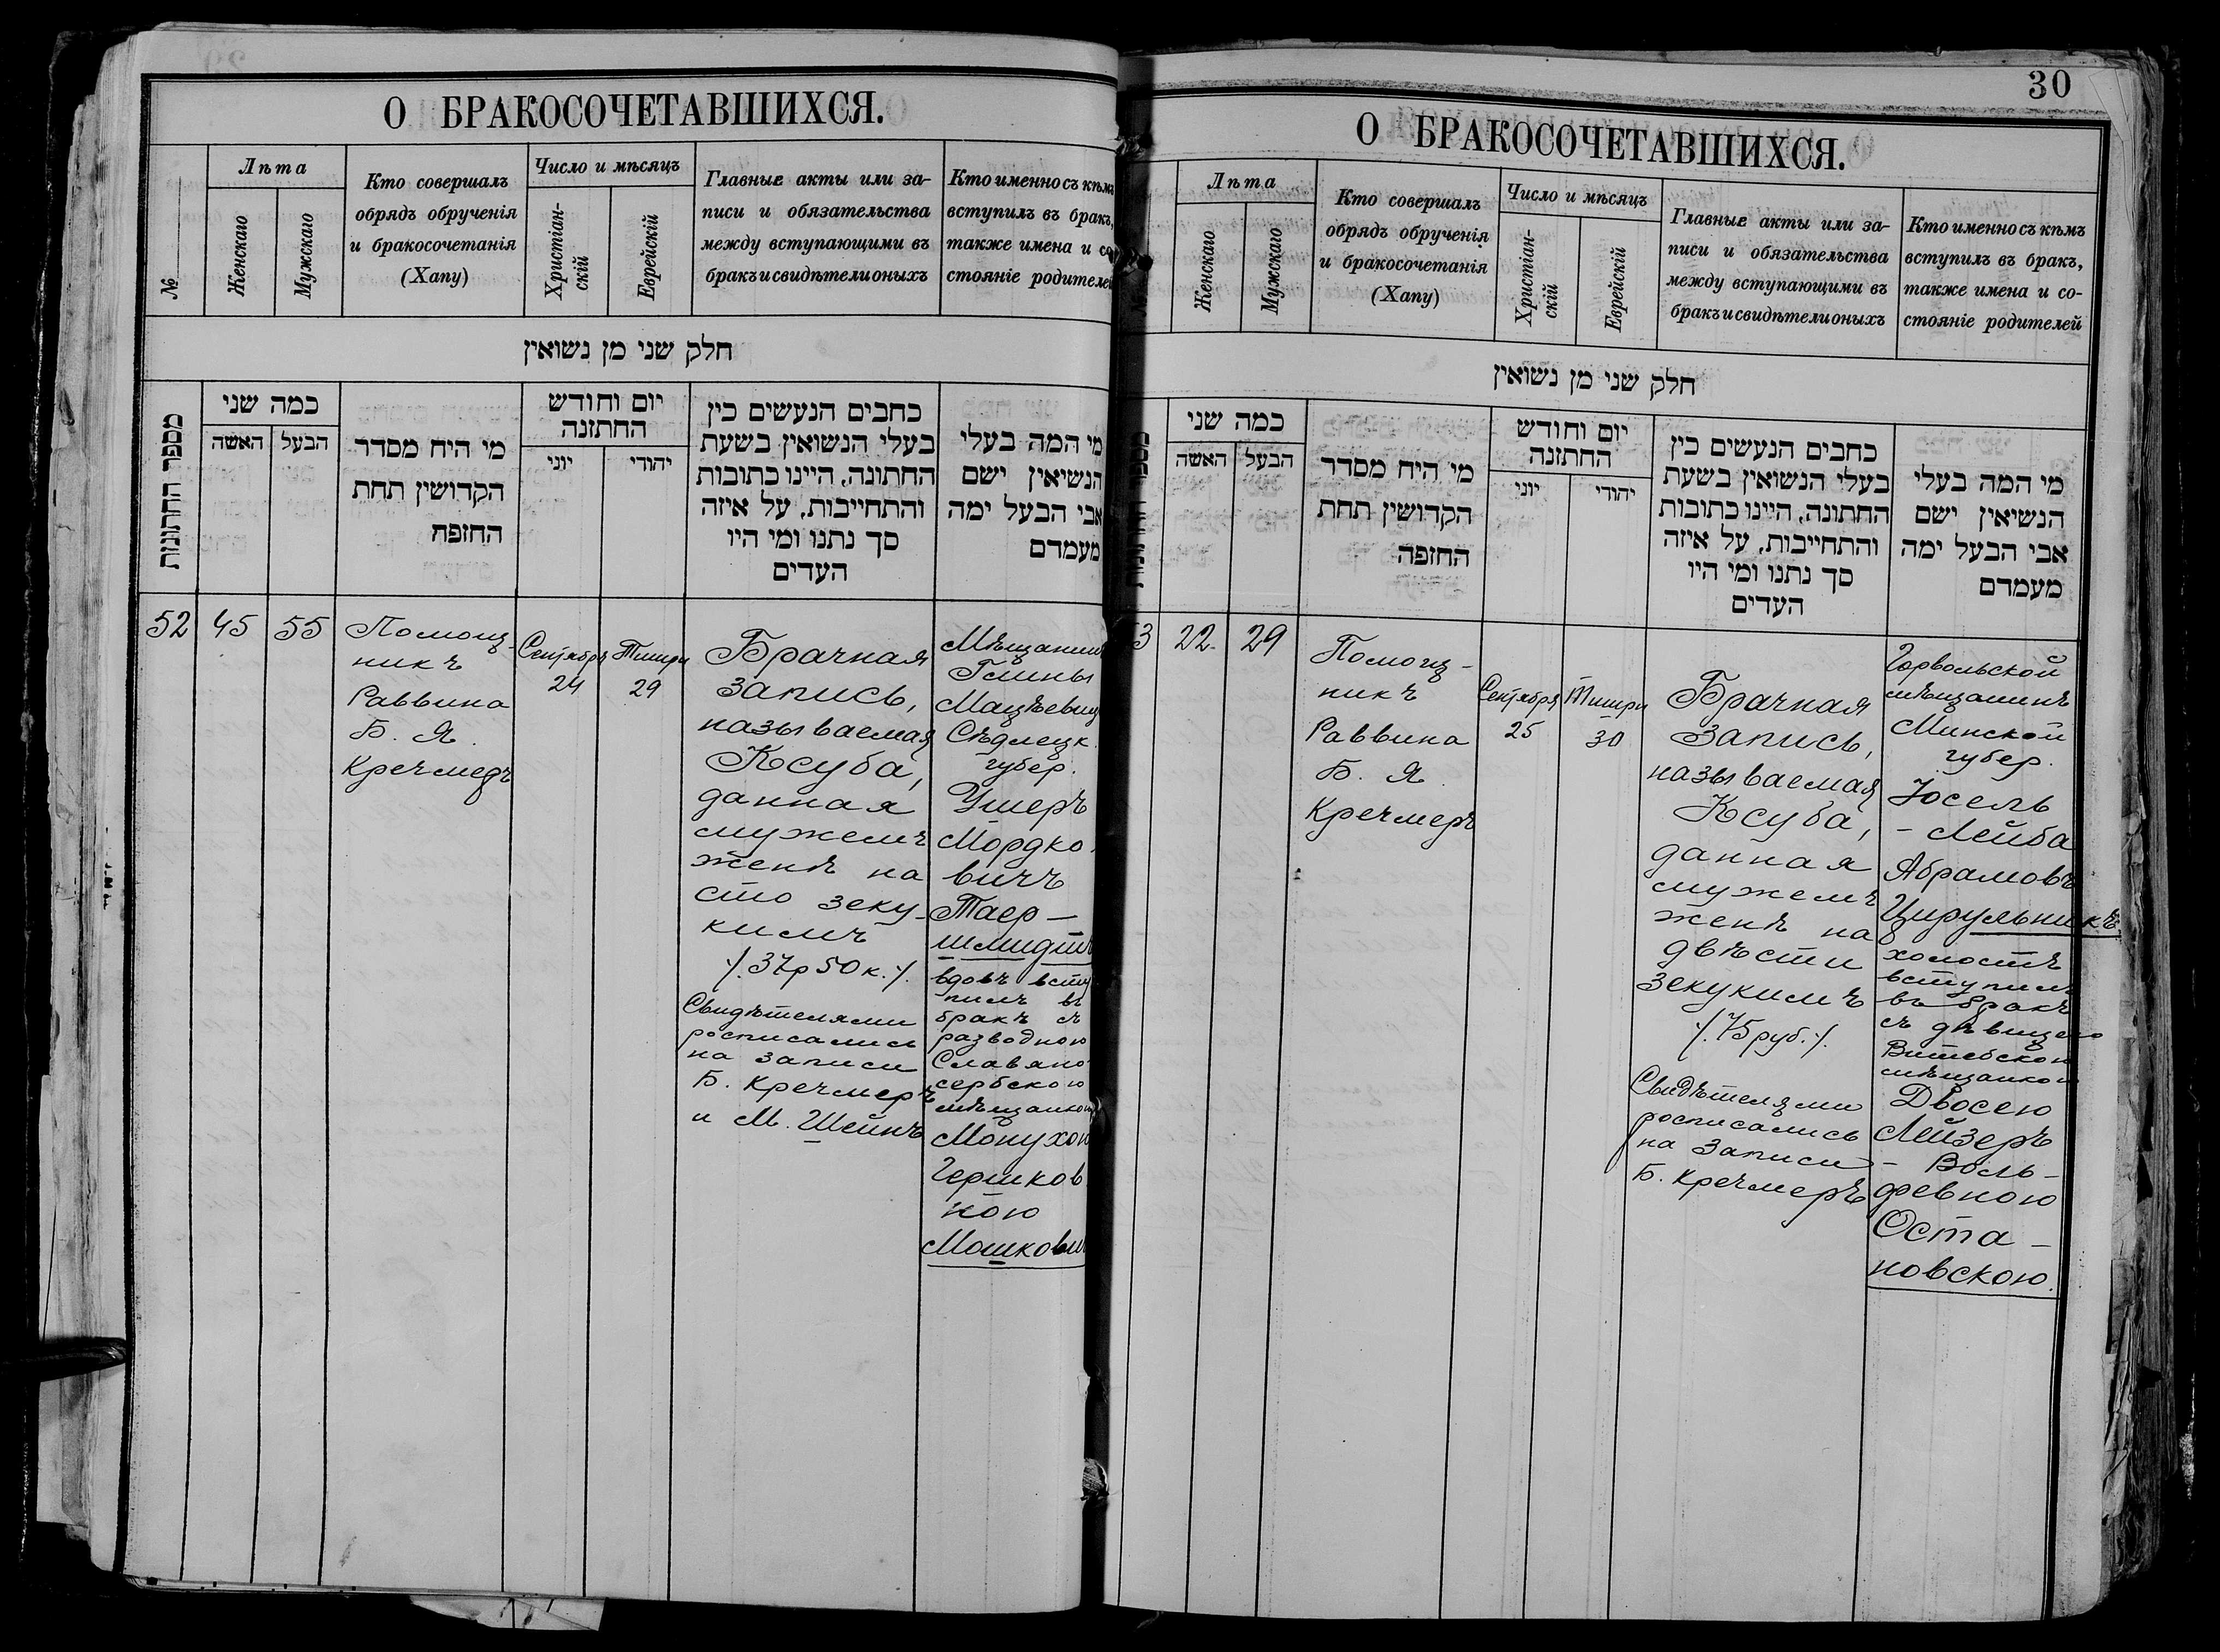 О БРАКОСОЧЕТАВШИХСЯ.
№
Лѣта
Женскаго
Мужскаго
Кто совершалъ
обрядъ обрученія
и бракосочетанія
(Хапу)
Число и мѣсяцъ
Христіан-
скій
Еврейскій
Главные акты или за-
писи и обязательства
между вступающими въ
бракъ и свидѣтели оныхъ
Кто именно съ кѣмъ
вступилъ въ бракъ,
также имена и со
стояніе родителей
חלק שני מן נשואין
מספר החתונות
כמה שני
האשה
הבעל
מי היח מסדר
הקדושין תחת
החזפה
יום וחודש
החתזנה
יוני
יהודי
כחבים הנעשים כין
בעלי הנשואין בשעת
החתונה, היינו כתובות
והתחייבות, על איזה
סך נתנו ומי היו
העדים
מי המה בעלי
הנשיאין ישם
אבי הבעל ימה
מעמדם
52
45
55
Помощ-
никъ
Раввина
Б. Я.
Кречмеръ
Сентября
24
Тишри
29
Брачная
запись,
называемая
Ксуба,
данная
мужемъ
женѣ на
сто зеку-
кимъ
/. 37р 50к. /.
Свидѣтелями
росписались
на записи
Б. Кречмеръ
и М. Шейнъ
Мѣщанинъ
Глины
Мацѣевич
Сѣдлецк.
губер.
Ушеръ
Мордко-
вичъ
Таер-
шмидтъ
вдовъ всту
пилъ въ
бракъ съ
разводною
Славяно
сербскою
мѣщанкою
Монухою
Гершков
ною
Мошкович
30
О БРАКОСОЧЕТАВШИХСЯ.
Лѣта
Женскаго
Мужскаго
Кто совершалъ
обрядъ обрученія
и бракосочетанія
(Хапу)
Число и мѣсяцъ
Христіан-
скій
Еврейскій
Главные акты или за-
писи и обязательства
между вступающими въ
бракъ и свидѣтели оныхъ
Кто именно съ кѣмъ
вступилъ въ бракъ,
также имена и со-
стояніе родителей
חלק שני מן נשואין
כמה שני
האשה
הבעל
מי היח מסדר
הקדושין תחת
החזפה
יום וחודש
החתזנה
יוני
יהודי
כחבים הנעשים כין
בעלי הנשואין בשעת
החתונה, היינו כתובות
והתחייבות, על איזה
סך נתנו ומי היו
העדים
מי המה בעלי
הנשיאין ישם
אבי הבעל ימה
מעמדם
3
22
29
Помощ-
никъ
Раввина
Б. Я.
Кречмеръ
Сентября
25
Тишри
30
Брачная
Запись,
называемая
Ксуба,
данная
мужемъ
женѣ на
двѣсти
зекукимъ
/. 75 руб. /.
Свидѣтелями
росписались
на записи
Б. Кречмеръ
Горвольской
мѣщанинъ
Минской
губер.
Іосель
- Лейба
Абрамовъ
Цирульникъ
холостъ
вступилъ
въ бракъ
съ дѣвицею
Витебскою
мѣщанкою
Двосею
Лейзеръ
- Воль-
февною
Оста-
новскою.